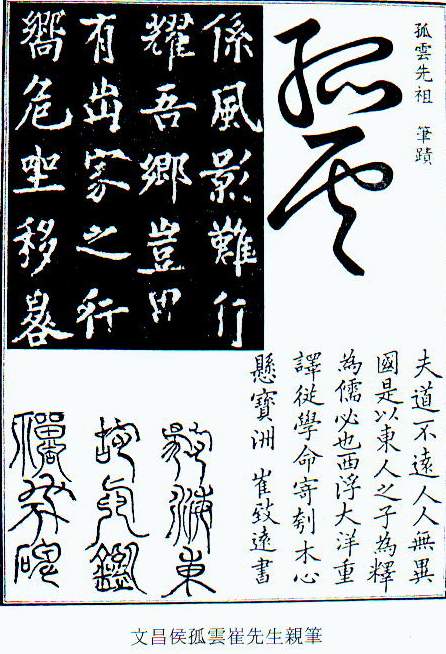 孤雲先祖 筆蹟
孤雲
係風影難行
耀吾鄉豈
有出家之行
嚮危坐移晷
夫道不遠人人無異
國是以東人之子為釋
為儒必也西浮大洋重
譯從學命寄刳木心
懸寶洲 崔致遠書
海東
故眞鑑
禪師碑
文昌侯孤雲崔先生親筆